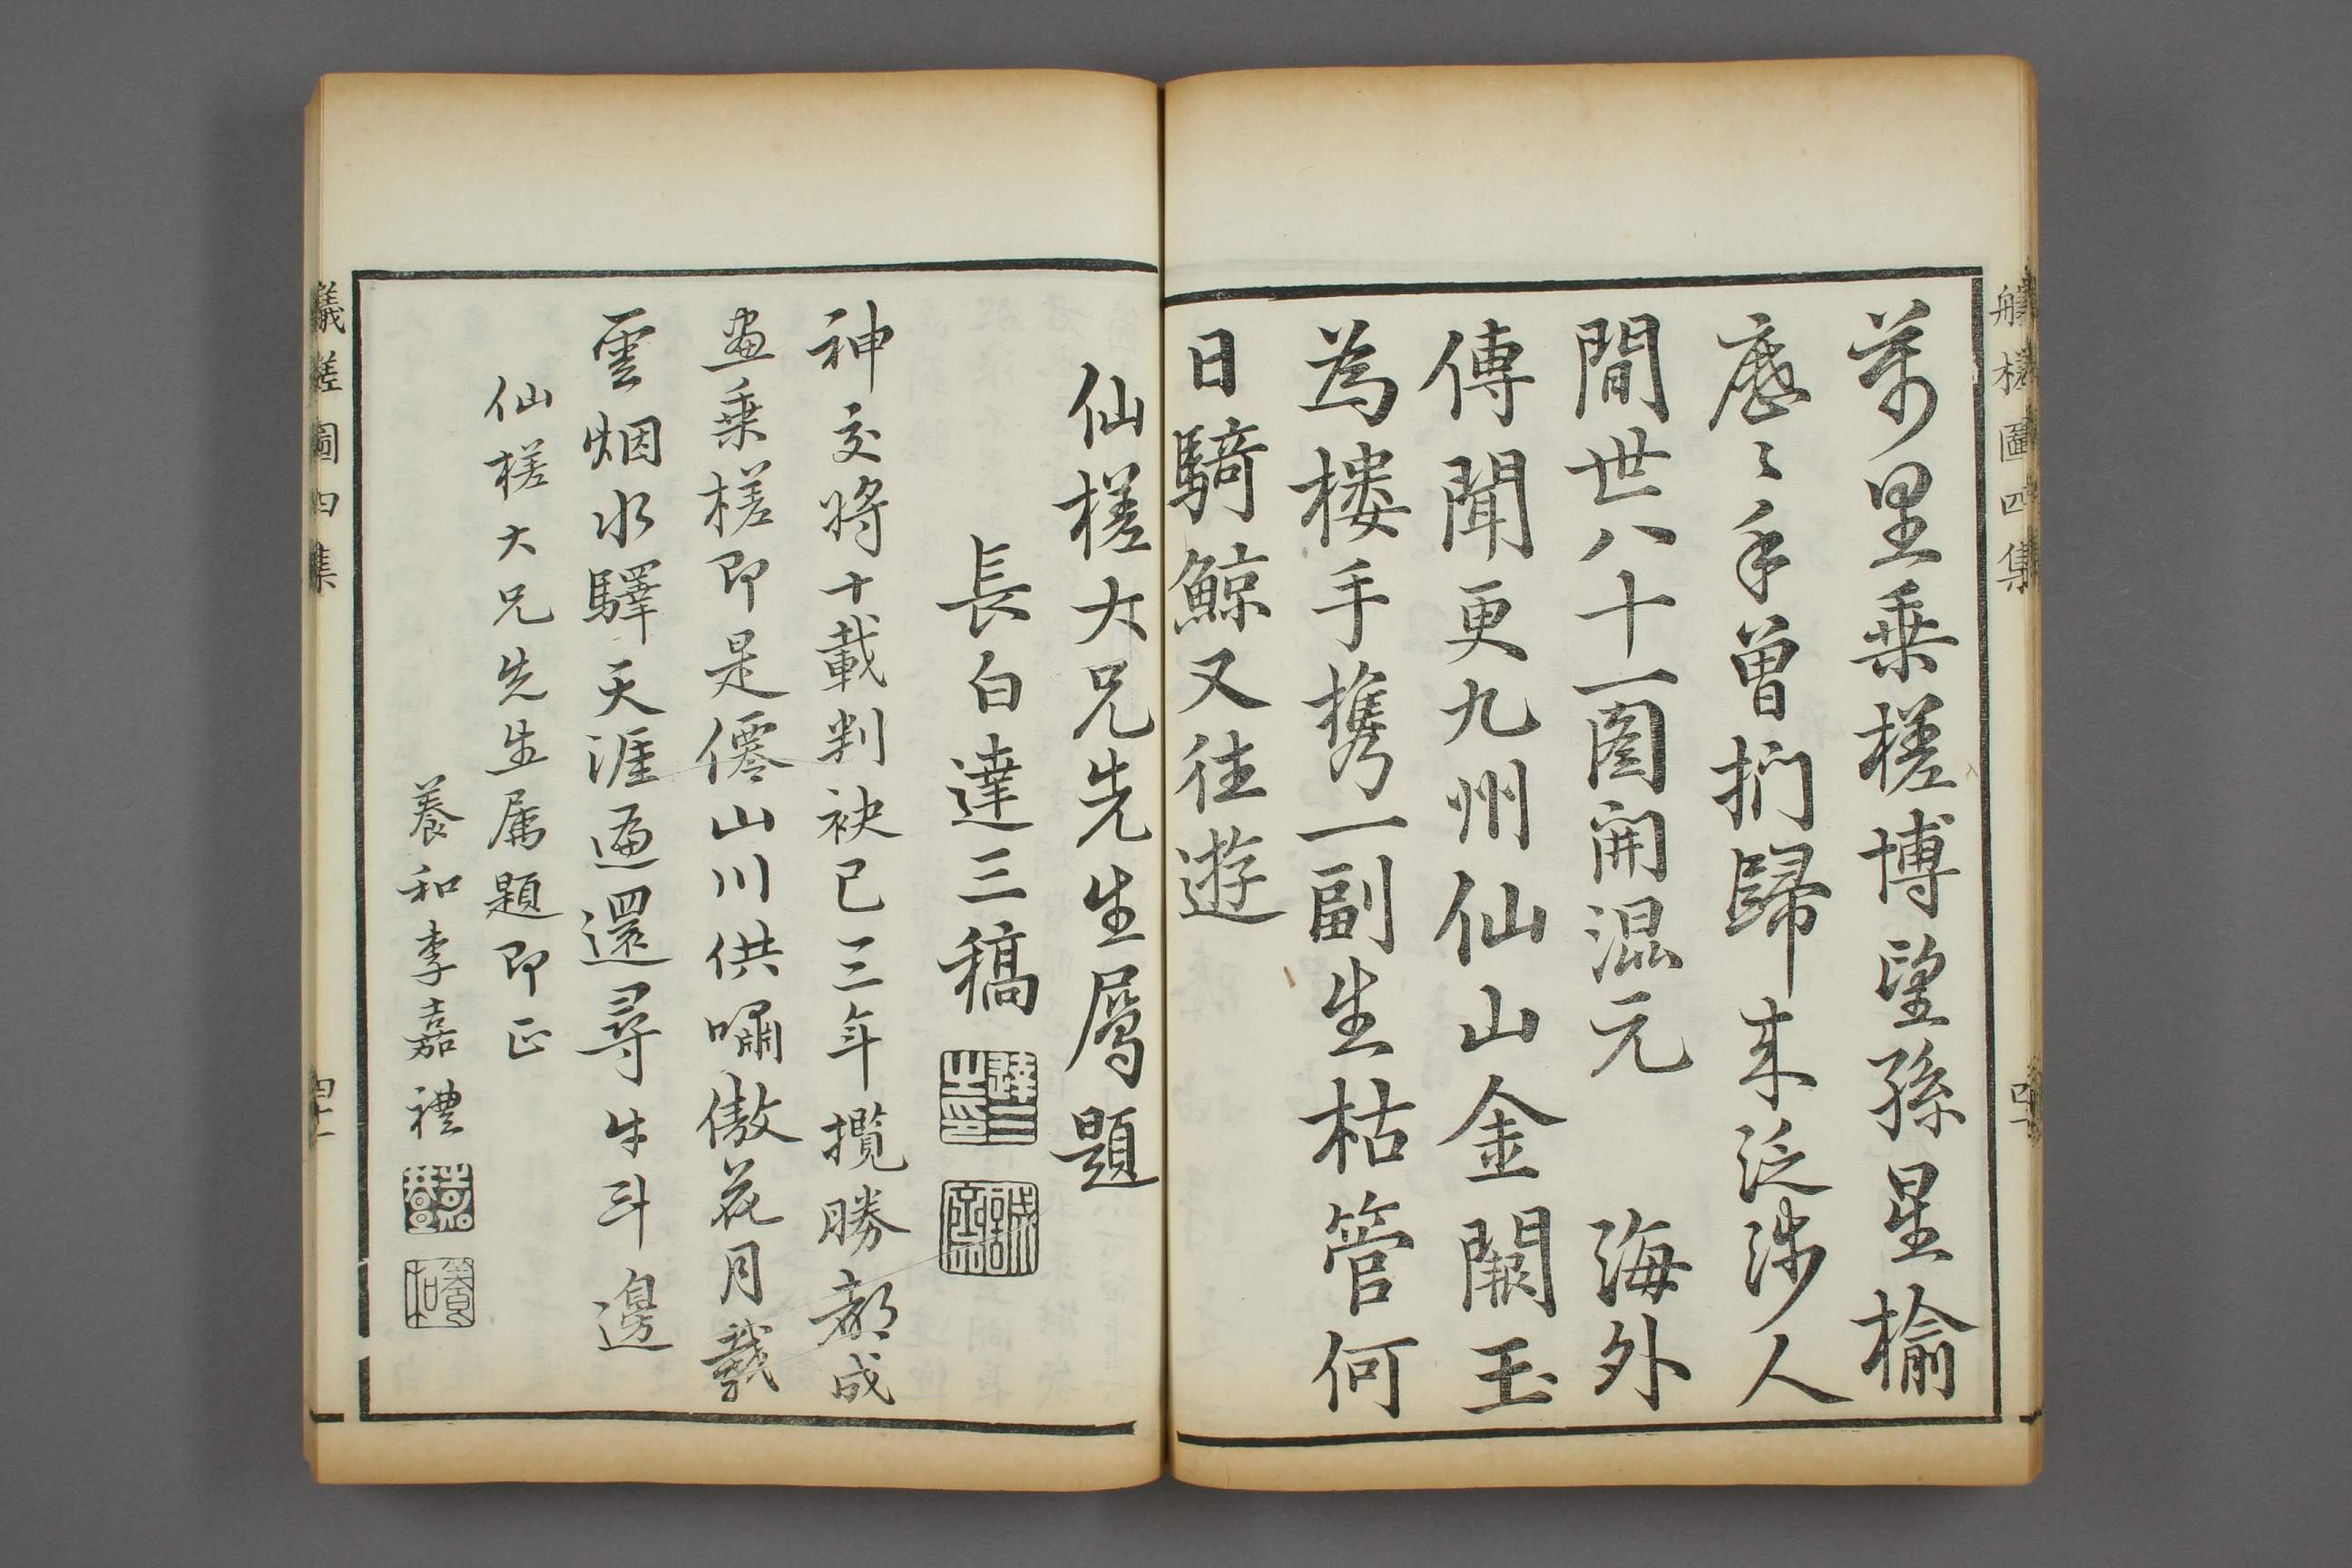 萬里乘槎博望孫星榆
歷〻手曾捫歸來泛涉人
間世八十一圖開混元　海外
傳聞更九州仙山金闕玉
為樓手携一副生枯管何
日騎鯨又往遊
仙槎大兄先生屬題
長白達三稿
達三之印
神交將十載判袂已三年攬勝都成
畫乘槎即是僊山川供嘯傲花月載
雲烟水驛天涯遍還尋牛斗邊
仙槎大兄先生屬題即正
養和李嘉禮
嘉禮
養和
槎圖四集
槎圖四集